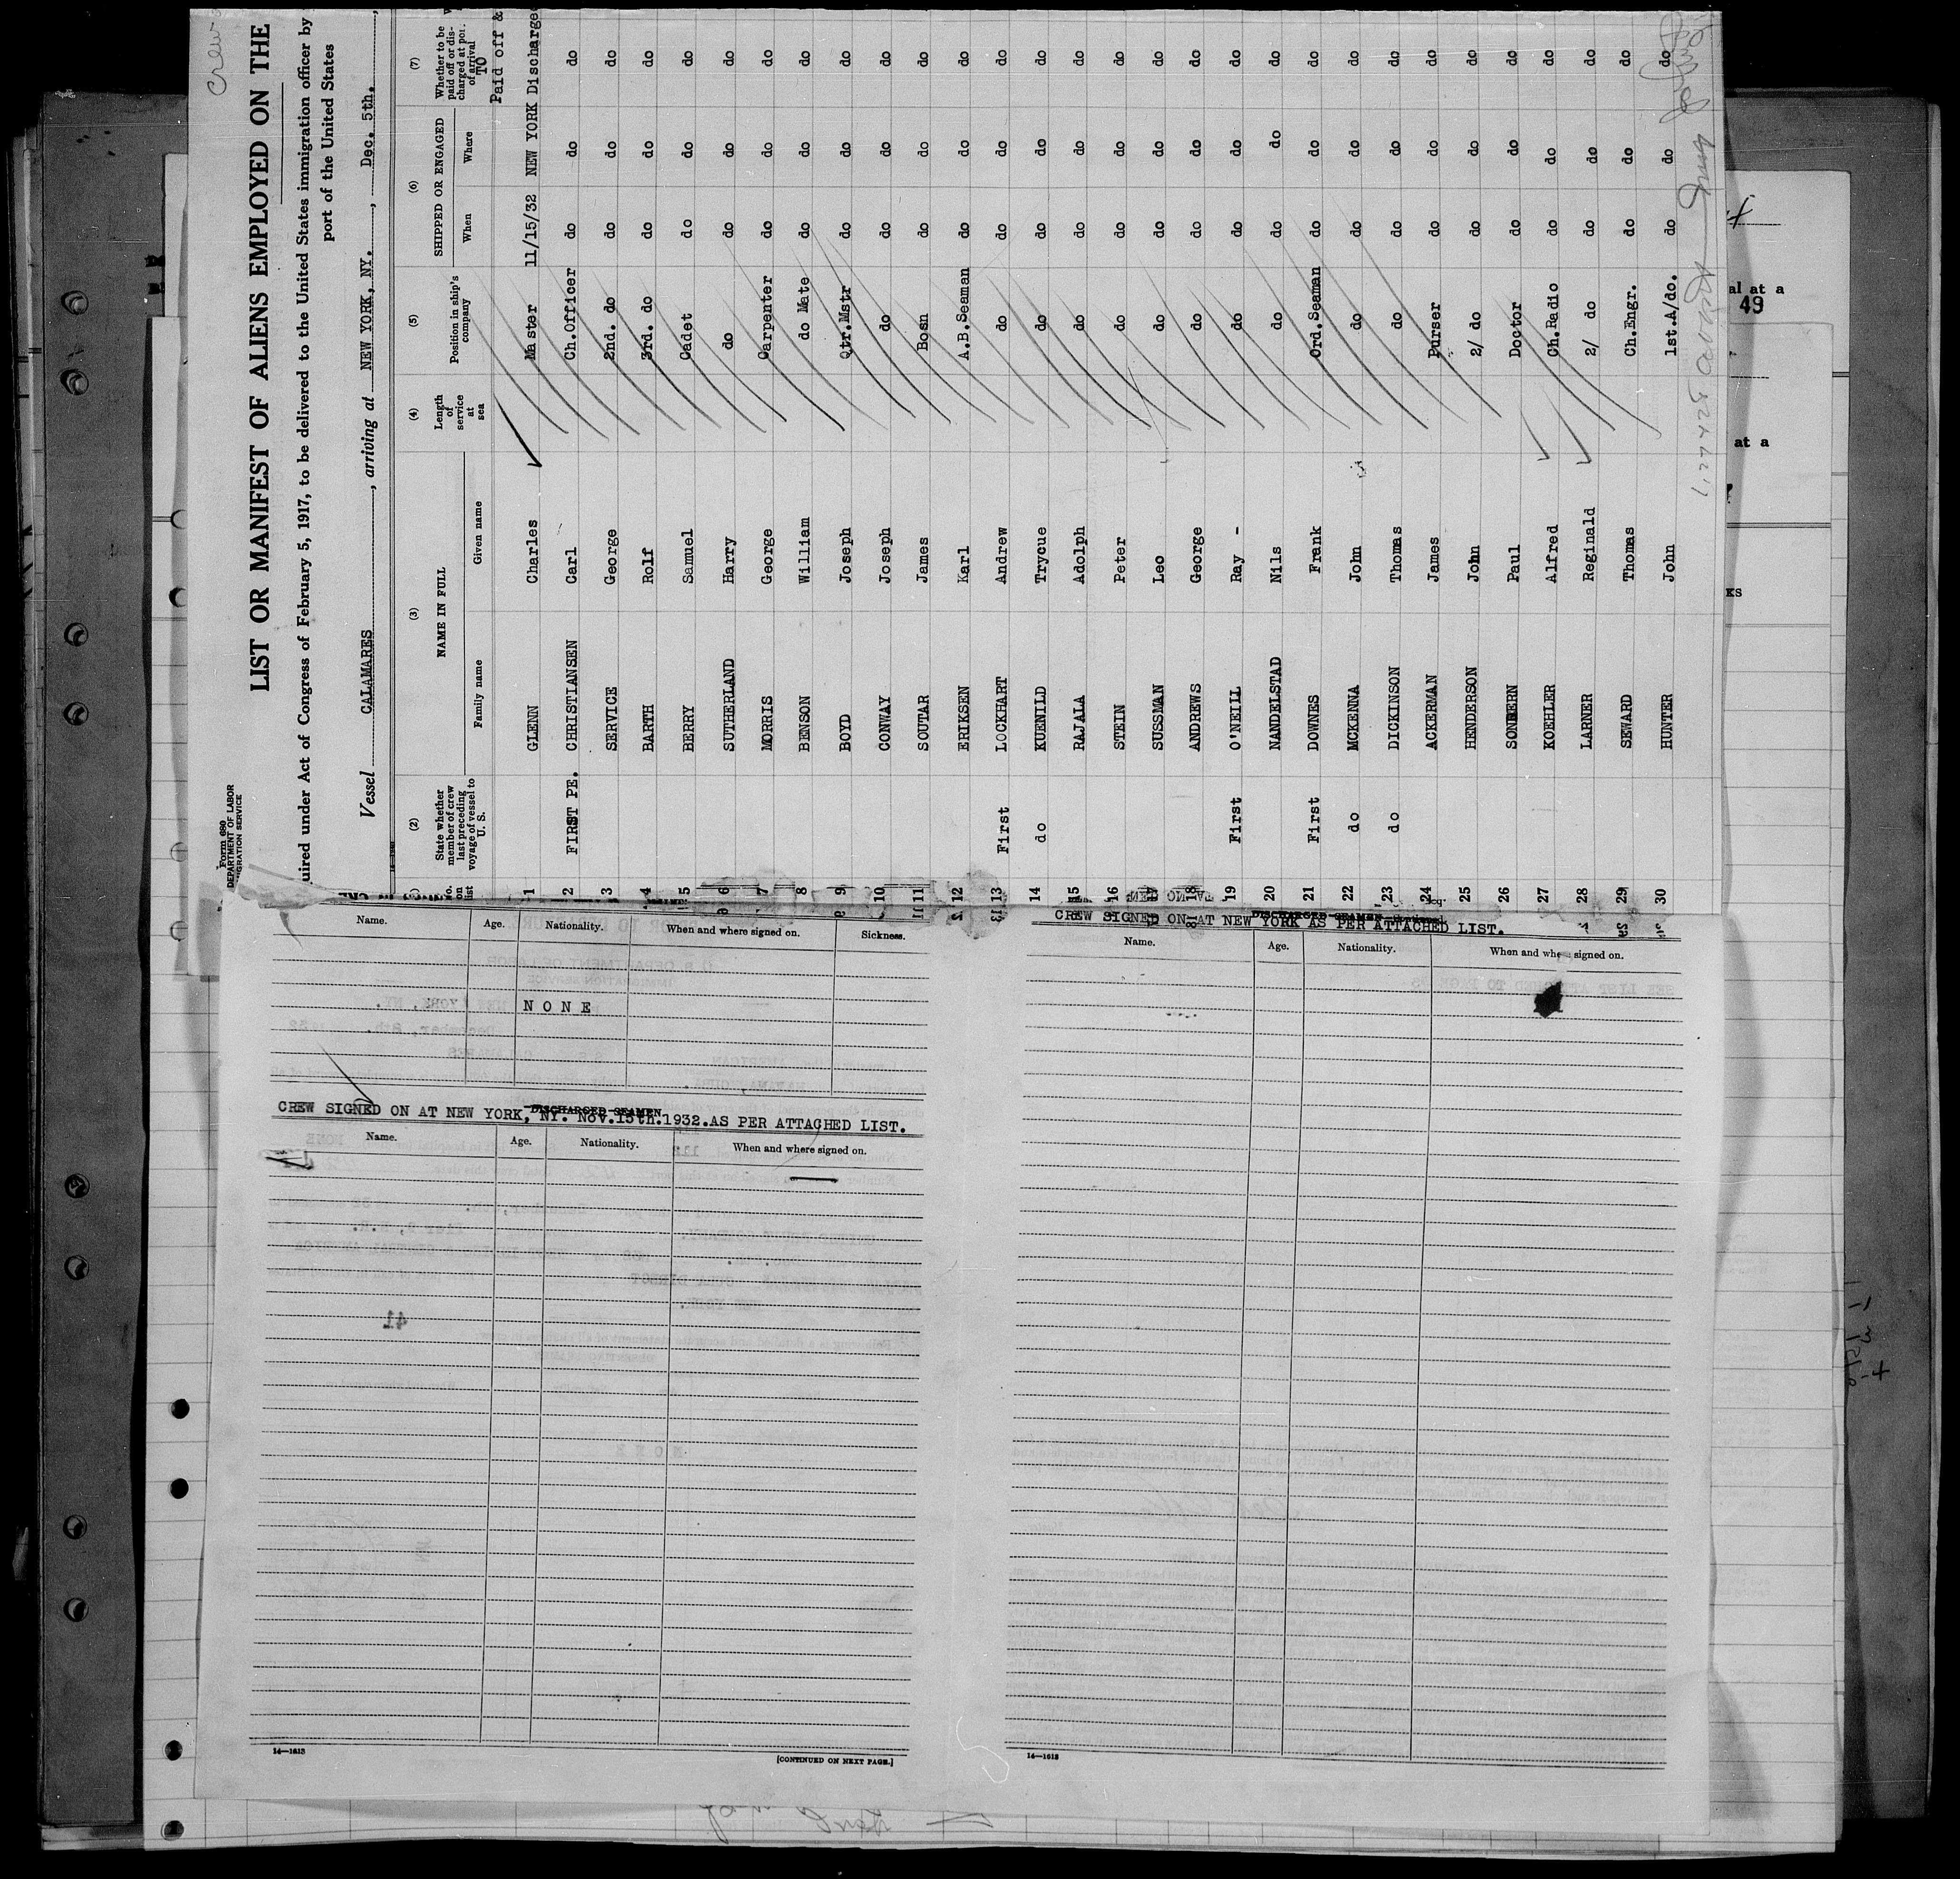 Crew
Form 680
DEPARTMENT OF LABOR
IMMIGRATION SERVICE
LIST OR MANIFEST OF ALIENS EMPLOYED ON THE
uired under Act of Congress of February 5, 1917, to be delivered to the United States immigration officer by
port of the United States
Vessel CALAMARES, arriving at NEW YORK, NY., Dec. 5th.,
(2) (3) (4) (5) (6) (7)
No. on list
State whether member of crew last preceding voyage of vessel to U. S.
NAME IN FULL
Family name Given name
Length of service at sea
Position in ship's company
SHIPPED OR ENGAGED
When Where
Whether to be paid off or discharged at port of arrival
TO
Paid off &
1 GLENN Charles Master 11/15/32 NEW YORK Discharged
2 FIRST PE. CHRISTIANSEN Carl Ch.Officer do do do
3 SERVICE George 2nd. do do do do
4 BARTH Rolf 3rd. do do do do
5 BERRY Samuel Cadet do do do
6 SUTHERLAND Harry do do do do
7 MORRIS George Carpenter do do do
8 BENSON William do Mate do do do
9 BOYD Joseph Qtr.Mstr do do do
10 CONWAY Joseph do do do do
11 SOUTAR James Bosn do do do
12 ERIKSEN Karl A.B.Seaman do do do
13 First LOCKHART Andrew do do do do
14 do KUENILD Trycue do do do do
15 RAJALA Adolph do do do do
16 STEIN Peter do do do do
17 SUSSMAN Leo do do do do
18 ANDREWS George do do do do
19 First O'NEILL Ray - do do do do
20 NANDELSTAD Nils do do do do
21 First DOWNES Frank Ord.Seaman do do do
22 do MCKENNA John do do do do
23 do DICKINSON Thomas do do do do
24 ACKERMAN James Purser do do do
25 HENDERSON John 2/ do do do do
26 SONBERN Paul Doctor do do do
27 KOEHLER Alfred Ch.Radio do do do
28 LARNER Reginald 2/ do do do do
29 SEWARD Thomas Ch.Engr. do do do
30 HUNTER John 1st.A/do. do do do
Name. Age. Nationality. When and where signed on. Sickness.
NONE
DISCHARGED SEAMEN
CREW SIGNED ON AT NEW YORK, NY. Nov.15th.1932.AS PER ATTACHED LIST.
Name. Age. Nationality. When and where signed on.
14—1613
[CONTINUED ON NEXT PAGE.]
DISCHARGED SEAMEN
CREW SIGNED ON AT NEW YORK AS PER ATTACHED LIST.
Name. Age. Nationality. When and where signed on.
14—1613
al at a
49
at a
KS